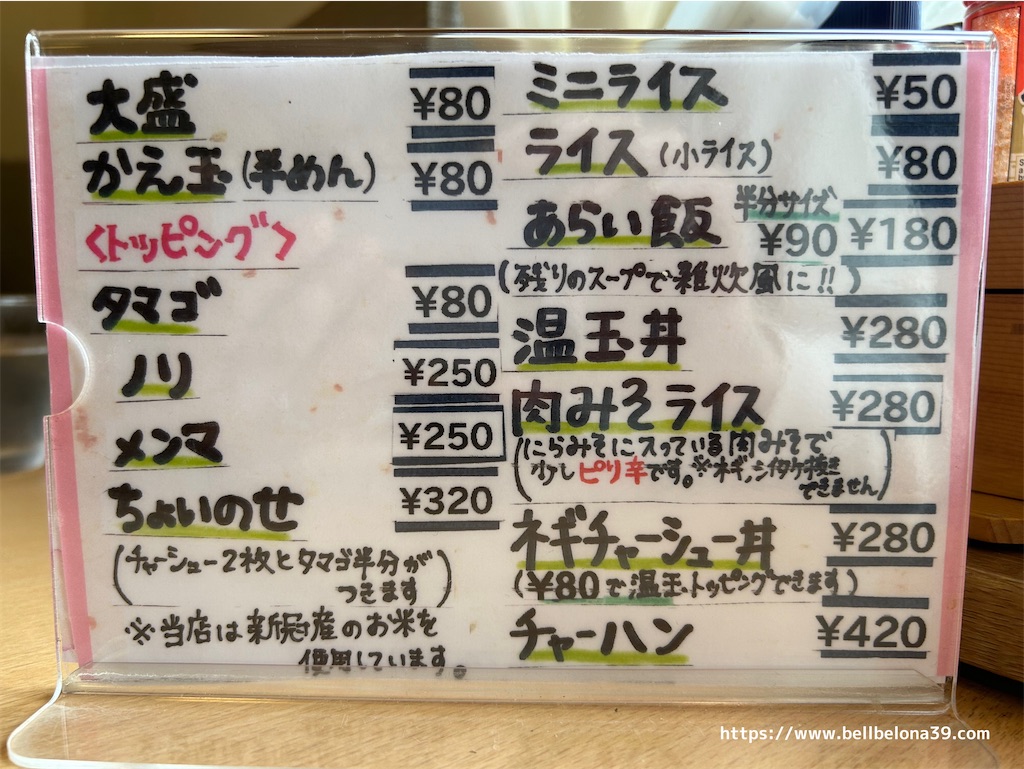 大盛 ¥80
かえ玉(半めん) ¥80
<トッピング>
タマゴ ¥80
ノリ ¥250
メンマ ¥250
ちょいのせ ¥320
(チャーシュー2枚とタマゴ半分が
つきます)
※当店は新冠産のお米を
使用しています。
ミニライス ¥50
ライス(小ライス) ¥80
あらい飯 半分サイズ ¥90 ¥180
(残りのスープで雑炊風に!!)
温玉丼 ¥280
肉みそライス ¥280
(にらみそに入っている肉みそで
少しピリ辛です。※ネギ,シイタケ抜き
できません)
ネギチャーシュー丼 ¥280
(¥80で温玉トッピングできます)
チャーハン ¥420
https://www.bellbelona39.com